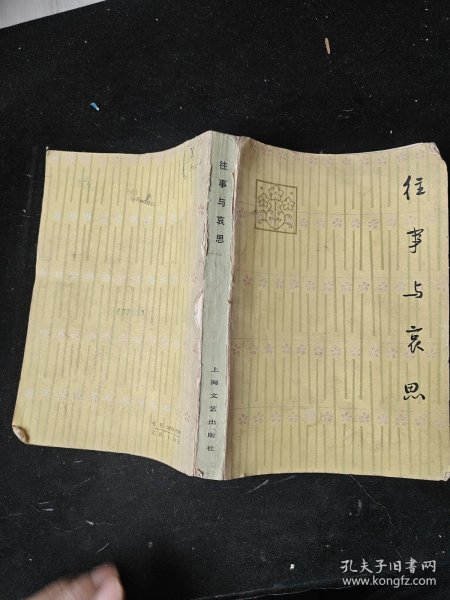 往事与哀思
往事与哀思
上海文艺出版社
孔夫子旧书网
www.kongfz.com